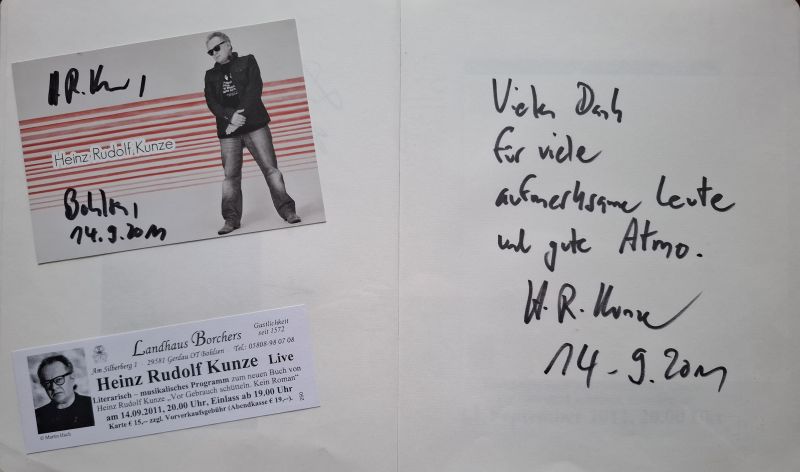 H.R. Kunze
Heinz Rudolf Kunze
Bohlsen,
14.9.2011
Landhaus Borchers
Gastlichkeit
seit 1572
Am Silberberg 1 29581 Gerdau OT Bohlsen Tel.: 05808-98 07 08
Heinz Rudolf Kunze Live
Literarisch – musikalisches Programm zum neuen Buch von
Heinz Rudolf Kunze „Vor Gebrauch schütteln. Kein Roman“
am 14.09.2011, 20.00 Uhr, Einlass ab 19.00 Uhr
Karte € 15,– zzgl. Vorverkaufsgebühr (Abendkasse € 19,–).
Vielen Dank
für viele
aufmerksame Leute
und gute Atmo.
H.R. Kunze
14.9.2011